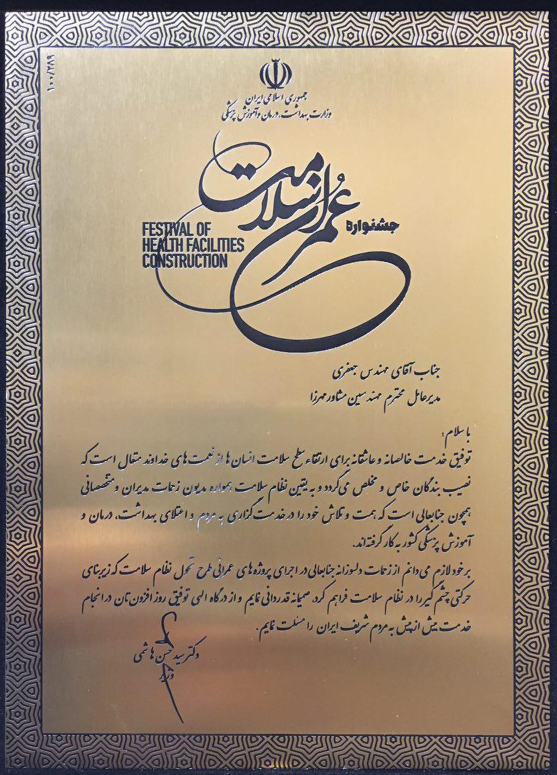 ۱۰۰/۳۸۹
جمهوری اسلامی ایران
وزارت بهداشت، درمان و آموزش پزشکی
جشنواره عمران سلامت
FESTIVAL OF
HEALTH FACILITIES
CONSTRUCTION
جناب آقای مهندس جعفری
مدیرعامل محترم مهندسین مشاور مهرزا
با سلام؛
توفیق خدمت خالصانه و عاشقانه برای ارتقاء سطح سلامت انسان ها از نعمت های خداوند متعال است که
نصیب بندگان خاص و مخلص می‌گردد و به یقین نظام سلامت همواره مدیون زحمات مدیران و متخصصانی
همچون جنابعالی است که همت و تلاش خود را در خدمت گزاری به مردم و اعتلای بهداشت، درمان و
آموزش پزشکی کشور به کار گرفته‌اند.
بر خود لازم می دانم از زحمات دلسوزانه جنابعالی در اجرای پروژه های عمرانی طرح تحول نظام سلامت که زیربنای
حرکتی چشم گیر را در نظام سلامت فراهم کرد، صمیمانه قدردانی نمایم و از درگاه الهی توفیق روز افزون تان در انجام
خدمت بیش از پیش به مردم شریف ایران را مسئلت نمایم.
دکتر سید حسن هاشمی
وزیر